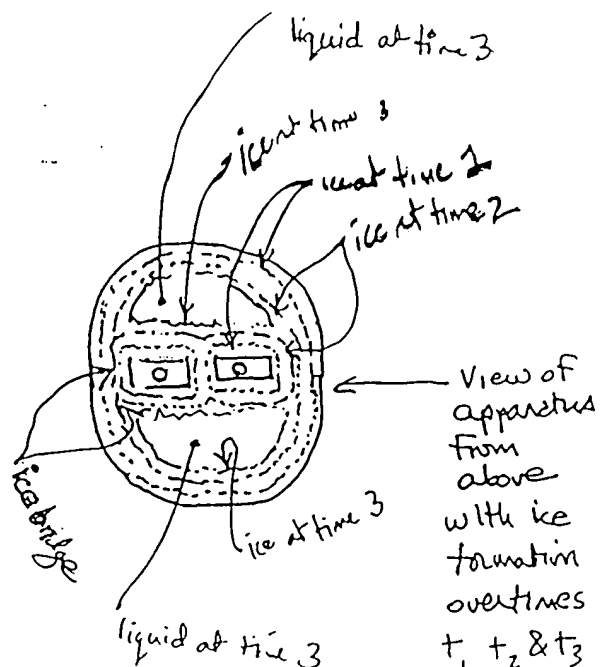 liquid at time 3
ice at time 3
ice at time 2
ice at time 2
View of
apparatus
from
above
with ice
formation
overtimes
t1, t2 & t3
ice bridge
ice at time 3
liquid at time 3